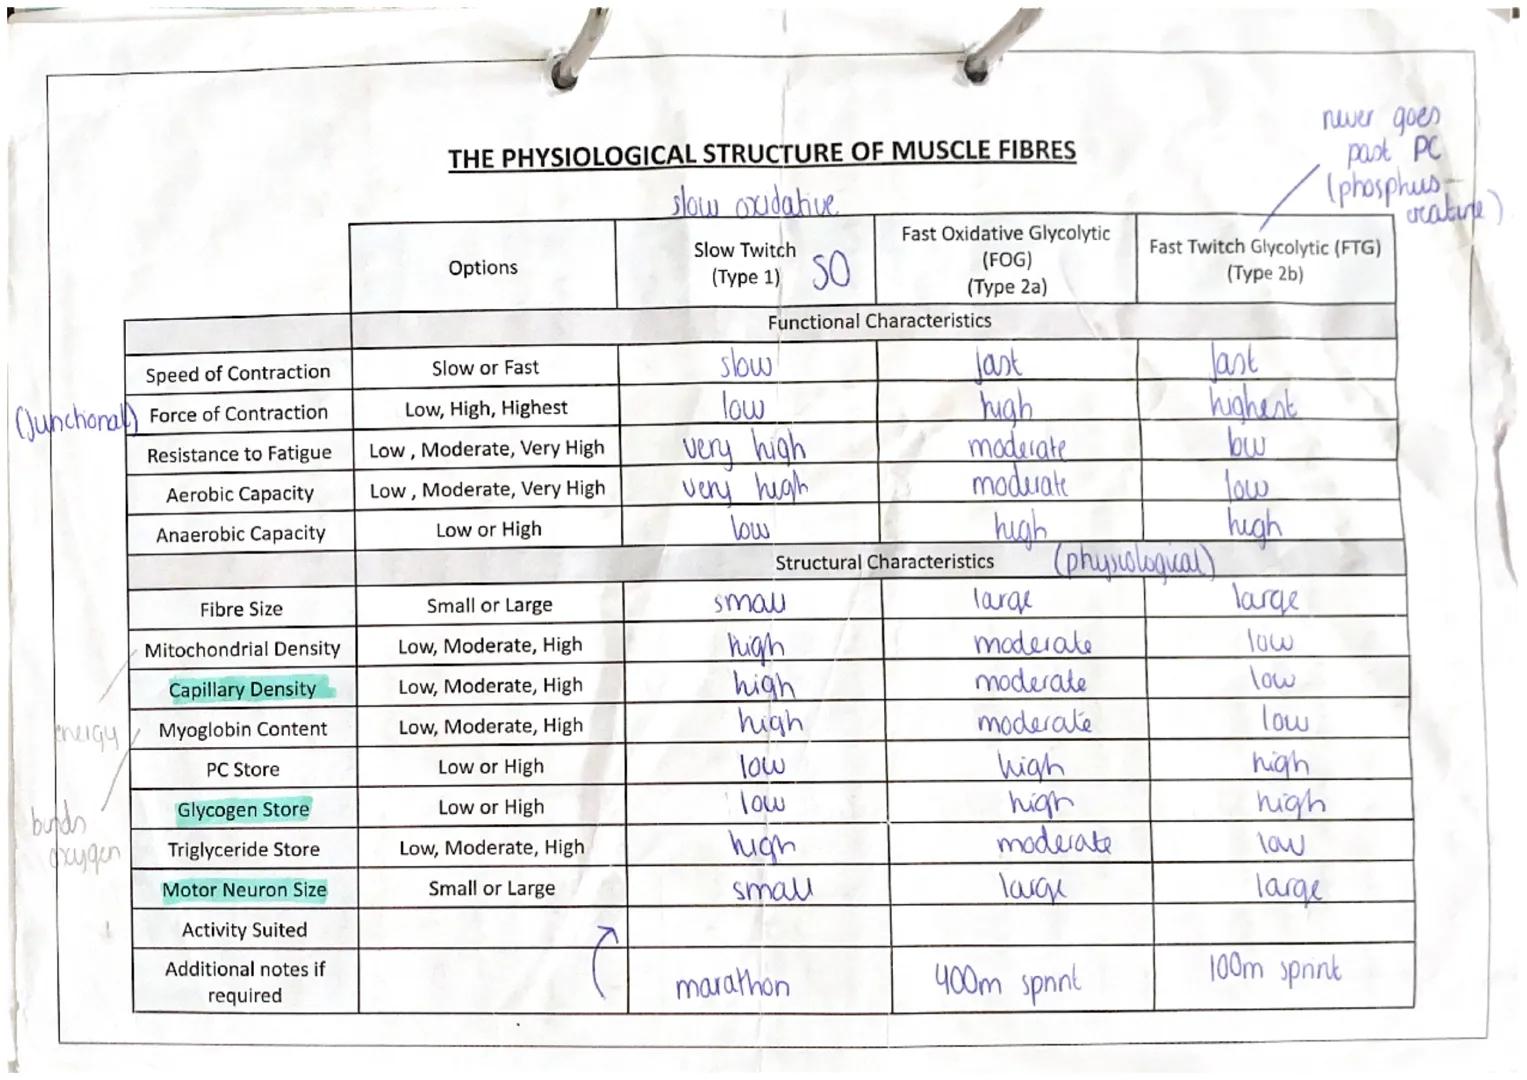 never goes
past PC
(phosphus-
creatine)
THE PHYSIOLOGICAL STRUCTURE OF MUSCLE FIBRES
slow oxidative
Options
Slow Twitch
(Type 1) SO
Fast Oxidative Glycolytic
(FOG)
(Type 2a)
Fast Twitch Glycolytic (FTG)
(Type 2b)
Functional Characteristics
Speed of Contraction Slow or Fast slow fast fast
(functional) Force of Contraction Low, High, Highest low high highest
Resistance to Fatigue Low , Moderate, Very High very high moderate low
Aerobic Capacity Low , Moderate, Very High very high moderate low
Anaerobic Capacity Low or High low high high
Structural Characteristics (physiological)
Fibre Size Small or Large small large large
Mitochondrial Density Low, Moderate, High high moderate low
Capillary Density Low, Moderate, High high moderate low
energy Myoglobin Content Low, Moderate, High high moderate low
PC Store Low or High low high high
Glycogen Store Low or High low high high
binds
oxygen Triglyceride Store Low, Moderate, High high moderate low
Motor Neuron Size Small or Large small large large
Activity Suited
Additional notes if
required
marathon 400m sprint 100m sprint